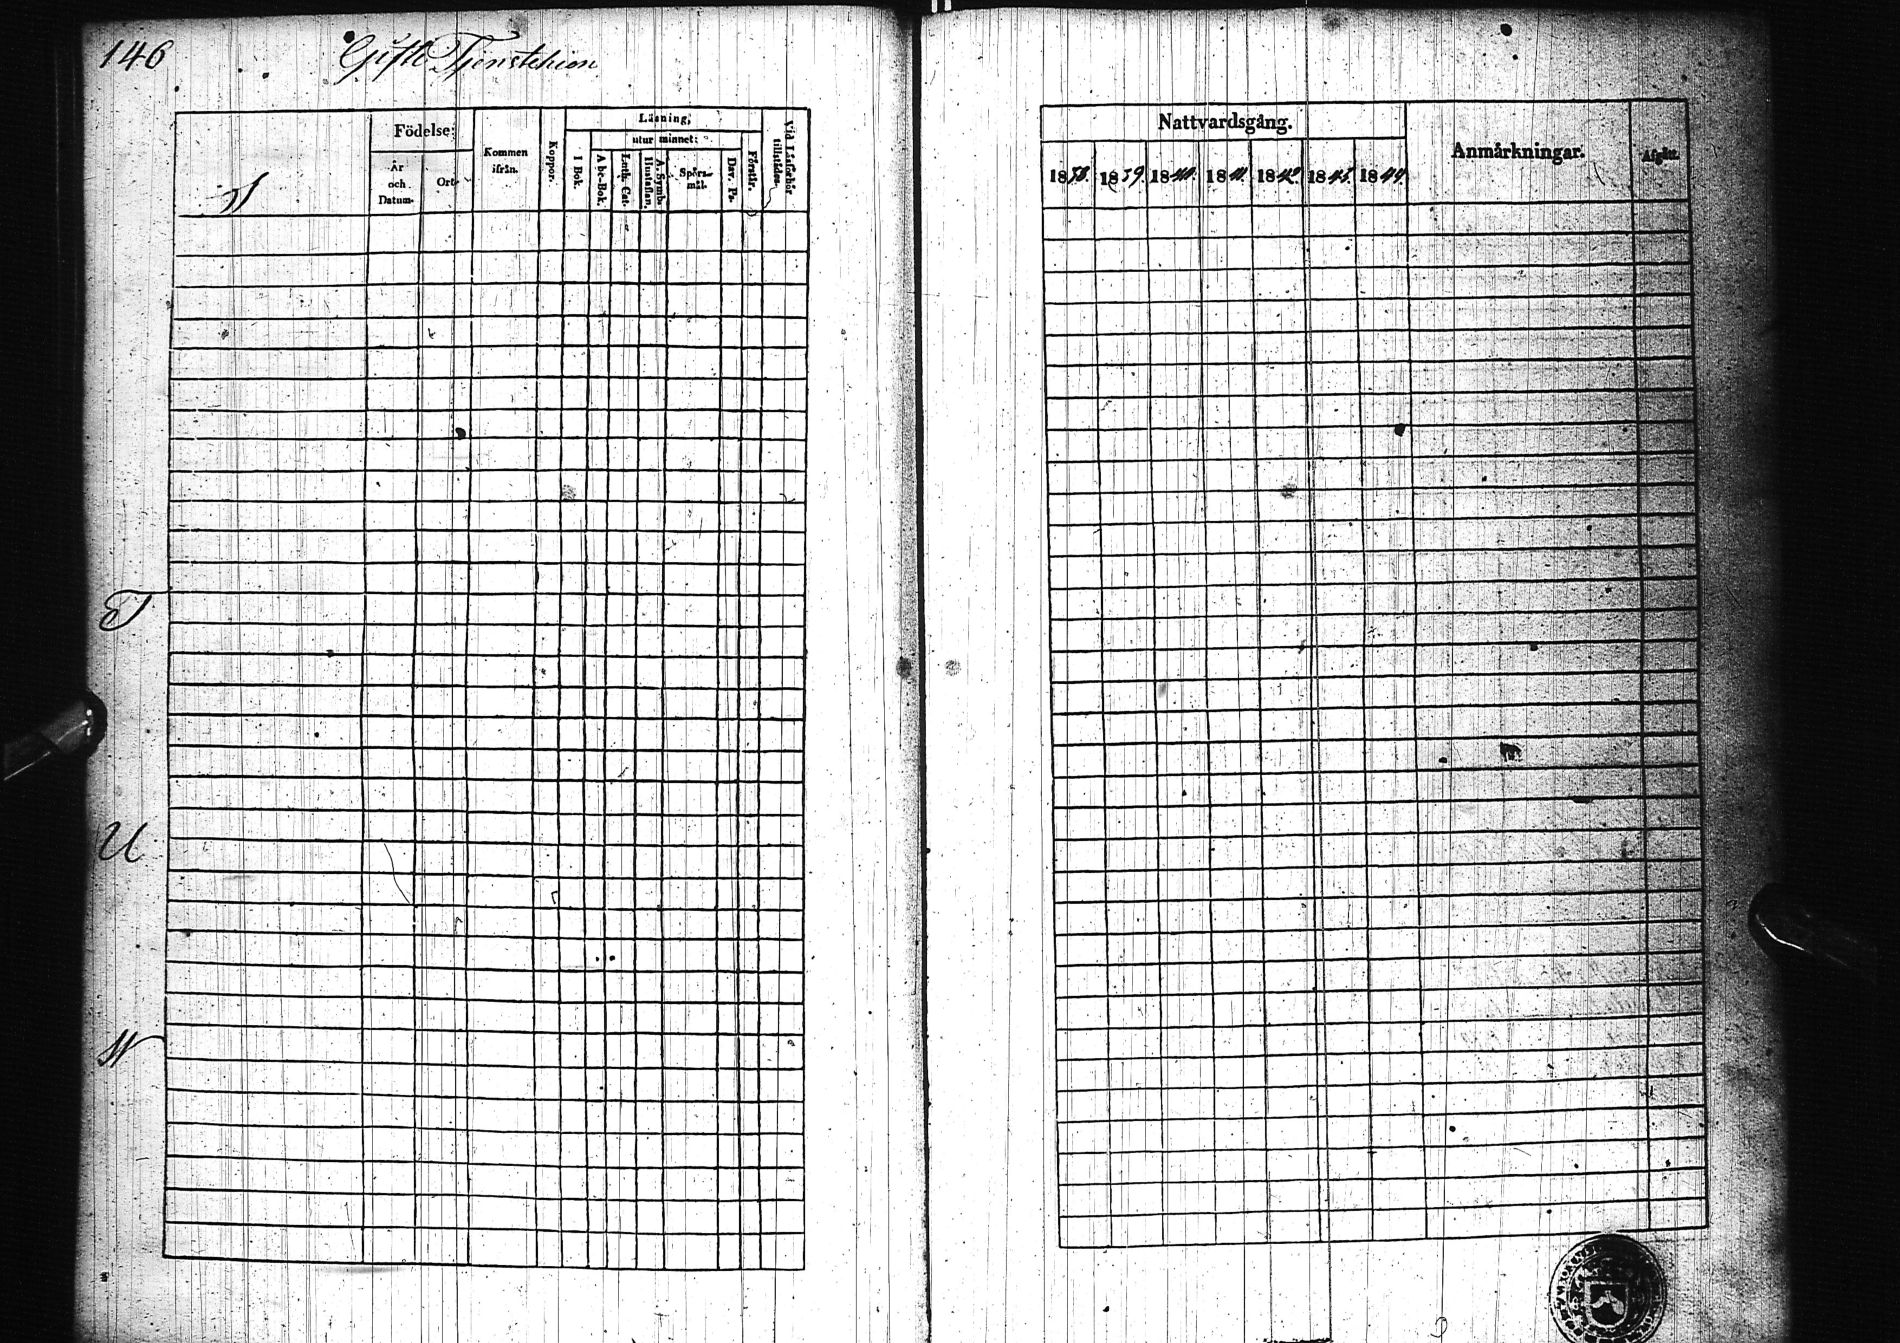 146
Gifte Tjenstehion
S
Födelse:
År och Datum.
Ort
Kommen ifrån.
Koppor.
Läsning,
utur minnet:
I Bok.
Abc-Bok.
Luth. Cat.
A. Symb. Hustaflan.
Spörs-mål.
Dav. Ps.
Förstår.
Vid Läsförhör tillstädes.
Nattvardsgång.
1838. 1839. 1840. 1841. 1842. 1843. 1844.
Anmärkningar.
Afgått.
T
U
W